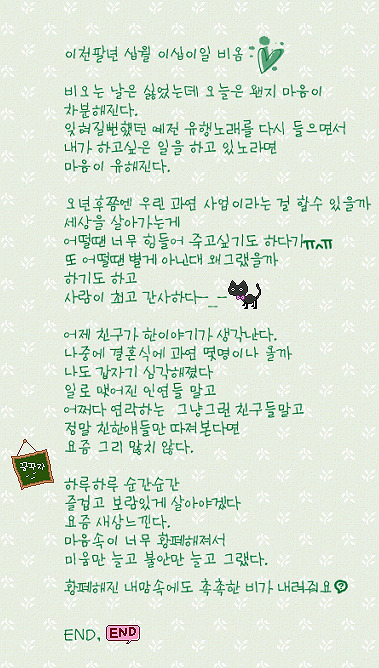 이천팔년 십월 이십이일 비옴
비오는 날은 싫었는데 오늘은 왠지 마음이
차분해진다.
잊혀질뻔했던 예전 유행노래를 다시 들으면서
내가 하고싶은 일을 하고 있노라면
마음이 유해진다.
오년후쯤엔 우린 과연 사업이라는 걸 할수 있을까
세상을 살아가는게
어떨땐 너무 힘들어 죽고싶기도 하다가ㅠㅠ
또 어떨땐 별게 아닌데 왜그랬을까
하기도 하고
사람이 최고 간사하다-__-
어제 친구가 한이야기가 생각난다.
나중에 결혼식에 과연 몇명이나 올까
나도 갑자기 심각해졌다
일로 맺어진 인연들 말고
어쩌다 연락하는 그냥그런 친구들말고
정말 친한애들만 따져본다면
요즘 그리 많치 않다.
꿍꾸자
하루하루 순간순간
즐겁고 보람있게 살아야겠다
요즘 새삼느낀다.
마음속이 너무 황폐해져서
미움만 늘고 불안만 늘고 그랬다.
황폐해진 내맘속에도 촉촉한 비가 내려줘요
END, END